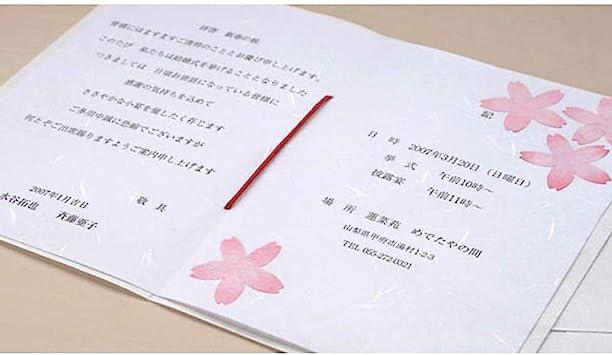 拝啓 新春の候
皆様にはますますご清祥のこととお慶び申し上げます。
このたび 私たちは結婚式を挙げることとなりました
つきましては 日頃お世話になっている皆様に
感謝の気持ちを込めて
ささやかな小宴を催したく存じます
ご多用中誠に恐縮でございますが
何とぞご出席賜りますようご案内申し上げます
敬具
2007年1月吉日
水谷拓也 斉藤亜子
記
日 時 2007年3月20日(日曜日)
挙 式 午前10時〜
披露宴 午前11時〜
場 所 蓮菜苑 めでたやの間
山梨県甲府市湯村1-2-3
TEL 055-272-0321